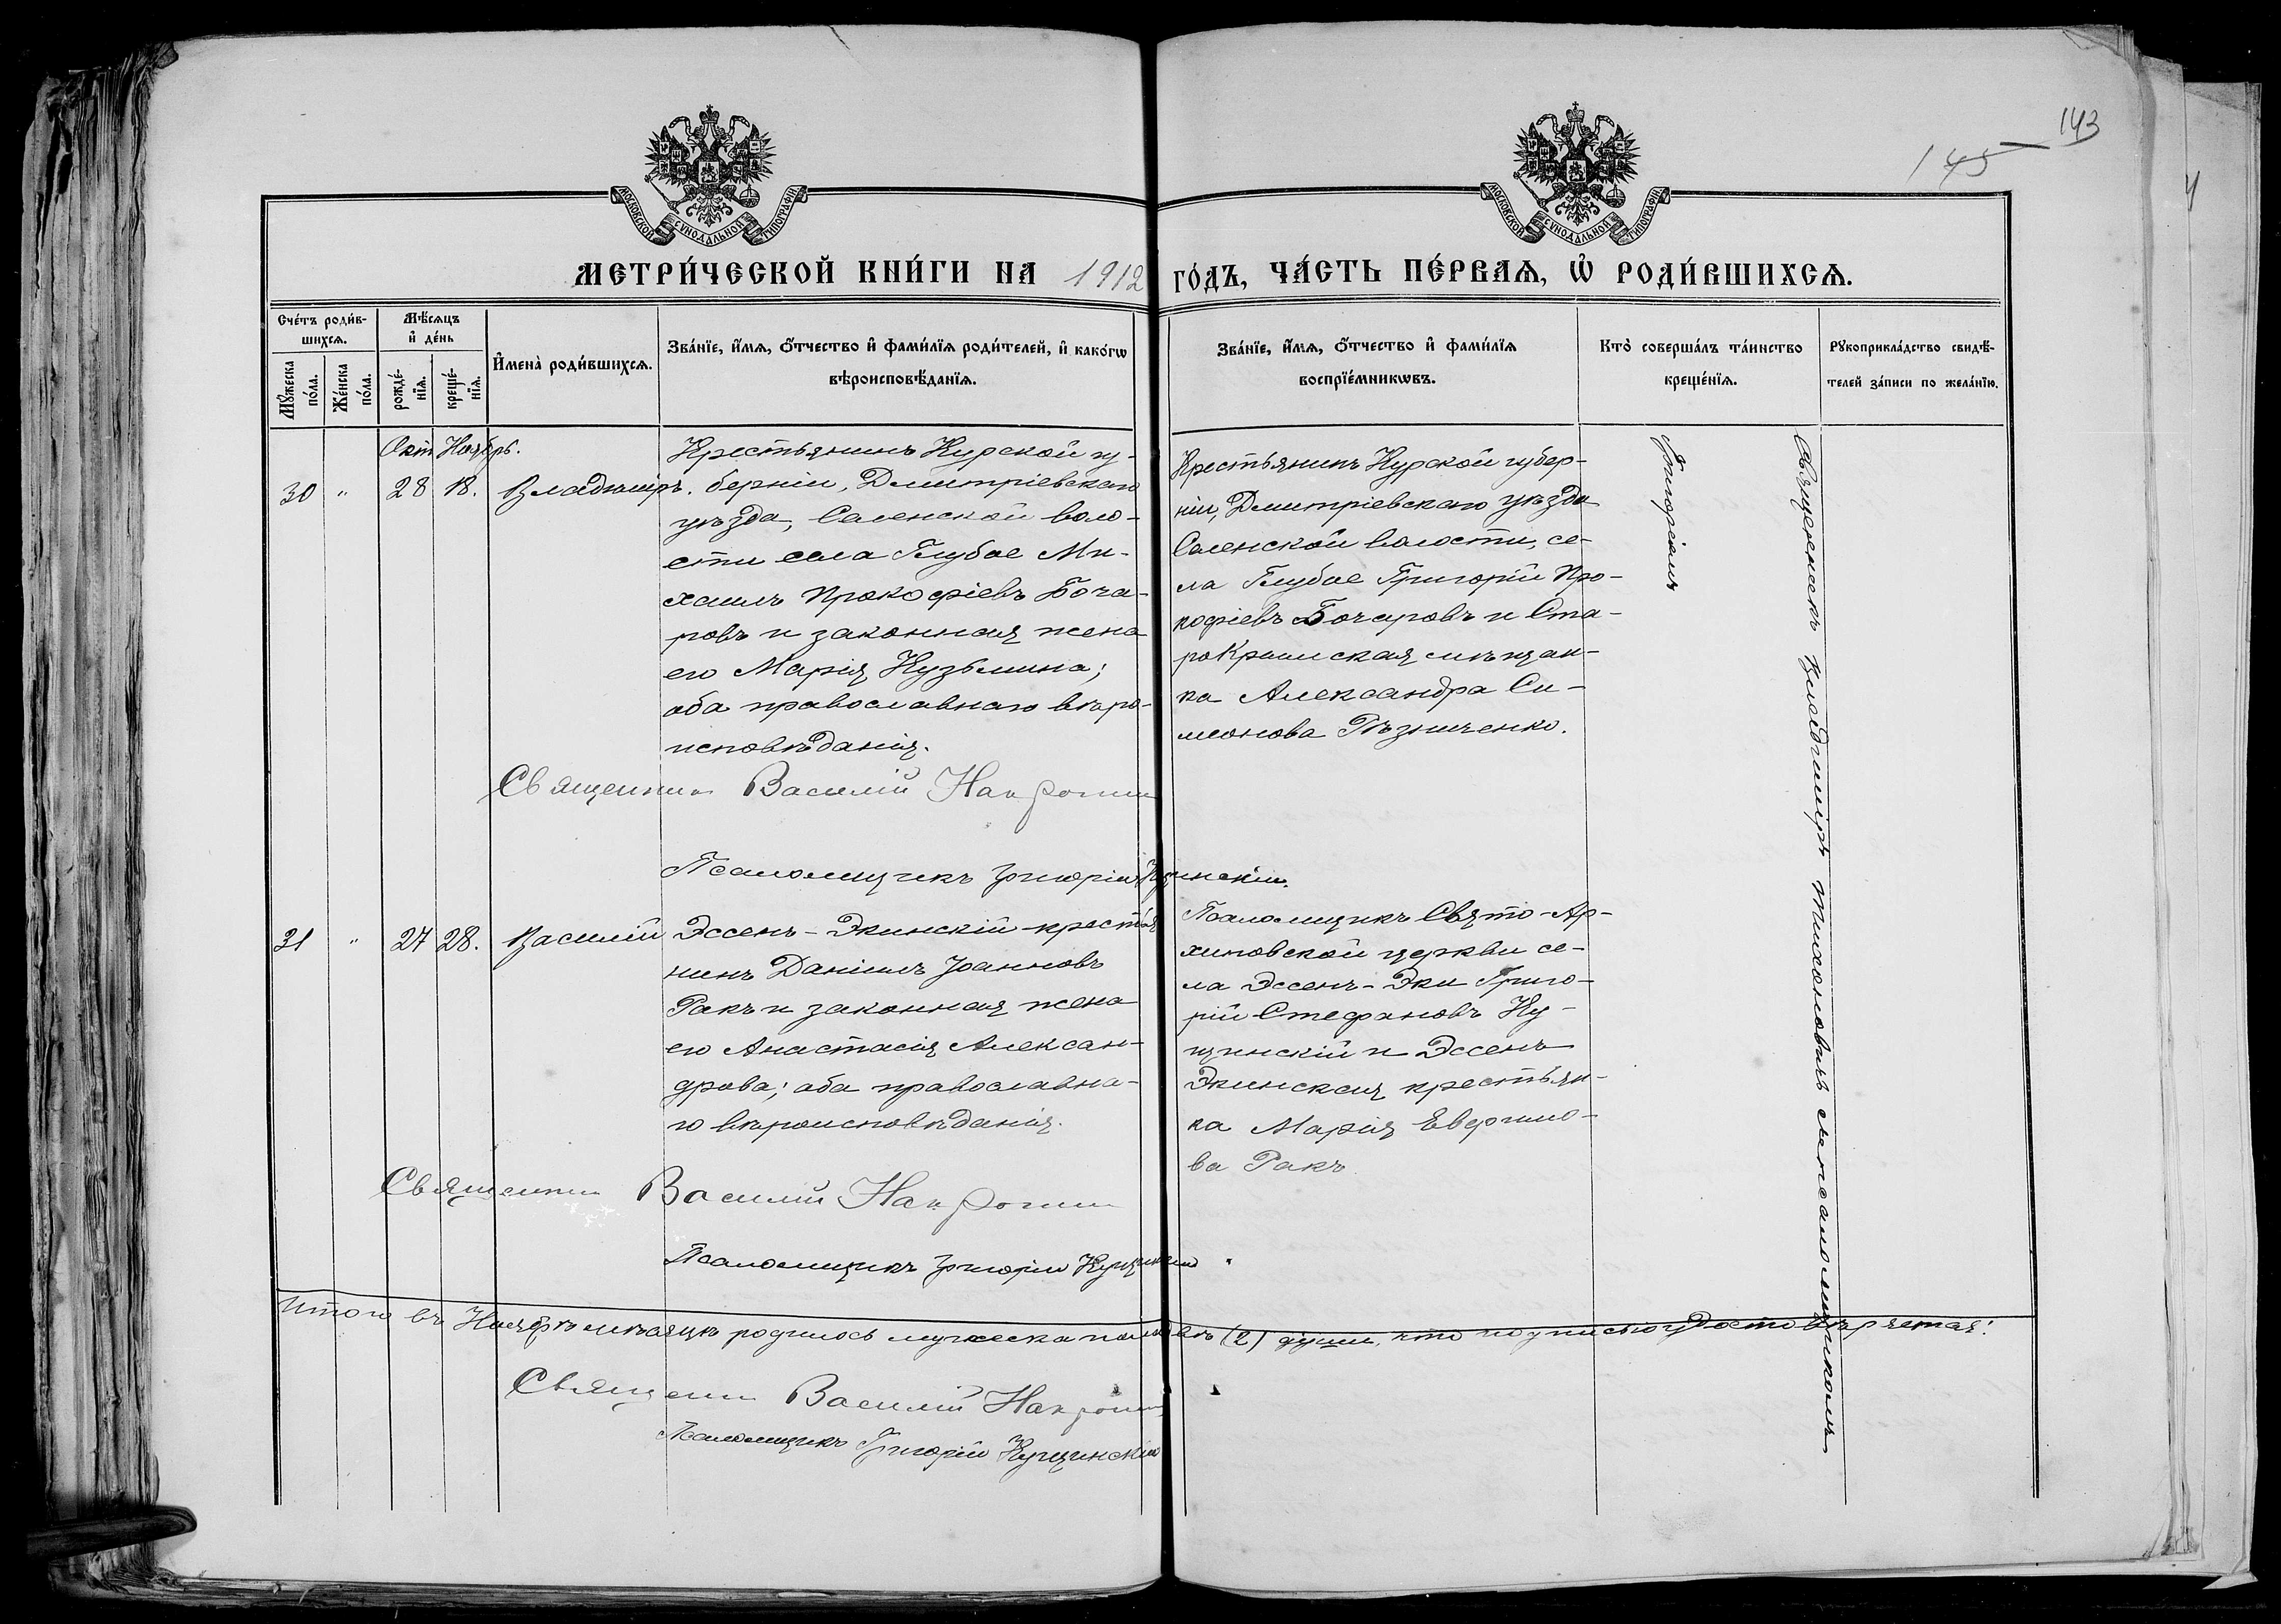 143
145
МОСКОВСКОЙ СѴНОДАЛЬНОЙ ТИПОГРАФІИ
МОСКОВСКОЙ СѴНОДАЛЬНОЙ ТИПОГРАФІИ
МЕТРИ́ЧЕСКОЙ КНИ́ГИ НА 1912 ГО́ДЪ, ЧА́СТЬ ПЕ́РВАѦ, Ѡ҆ РОДИ́ВШИХСѦ.
Сче́тъ роди́в-
шихсѧ.
Мꙋ́жеска по́ла.
Же́нска по́ла.
Мѣ́сѧцъ
и҆ де́нь
рожде́-
нїѧ.
креще́-
нїѧ.
И҆мена̀ роди́вшихсѧ.
Зва́нїе, и҆́мѧ, ѻ҆́тчество и҆ фами́лїѧ роди́телей, и҆ како́гѡ
вѣроисповѣ́данїѧ.
Зва́нїе, и҆́мѧ, ѻ҆́тчество и҆ фами́лїѧ
воспрїе́мникѡвъ.
Кто̀ соверша́лъ та́инство
креще́нїѧ.
Рꙋкоприкла́дство свидѣ́-
телей за́писи по жела́нїю.
Окт Ноябрь.
30 " 28 18. Владимиръ.
Крестьянинъ Курской гу-
берніи, Дмитріевскаго
уѣзда, Саленской воло-
сти села Глубое Ми-
хаилъ Прокофіевъ Боча-
ровъ и законная жена
его Марія Кузьмина;
оба православнаго вѣро-
исповѣданія.
Крестьянинъ Курской губер-
ніи, Дмитріевскаго уѣзда
Саленской волости, се-
ла Глубое Григорій Про-
кофіевъ Бочаровъ и Ста-
рокрымская мѣщан-
ка Александра Си-
меонова Рѣзниченко.
Священникъ Владимиръ Тихоновичъ съ псаломщикомъ
Григоріемъ
Священникъ Василій
Псаломщикъ Григорій Кущинскій.
31 " 27 28. Василій
Эссенъ-Экинскій крестья
нинъ Даніилъ Іоанновъ
Ракъ и законная жена
его Анастасія Алексан-
дрова; оба православна-
го вѣроисповѣданія.
Псаломщикъ Свято-Ар-
хиповской церкви се-
ла Эссенъ-Эки Григо-
рій Стефановъ Ку-
щинскій и Эссенъ
Экинская крестьян-
ка Марія
ва Ракъ
Священникъ Василій
Псаломщикъ Григорій Кущинскій
Итого въ Ноябрѣ мѣсяцѣ родилось мужеска пола двѣ (2) души, что подписью удостовѣряемъ:
Священникъ Василій
Псаломщикъ Григорій Кущинскій